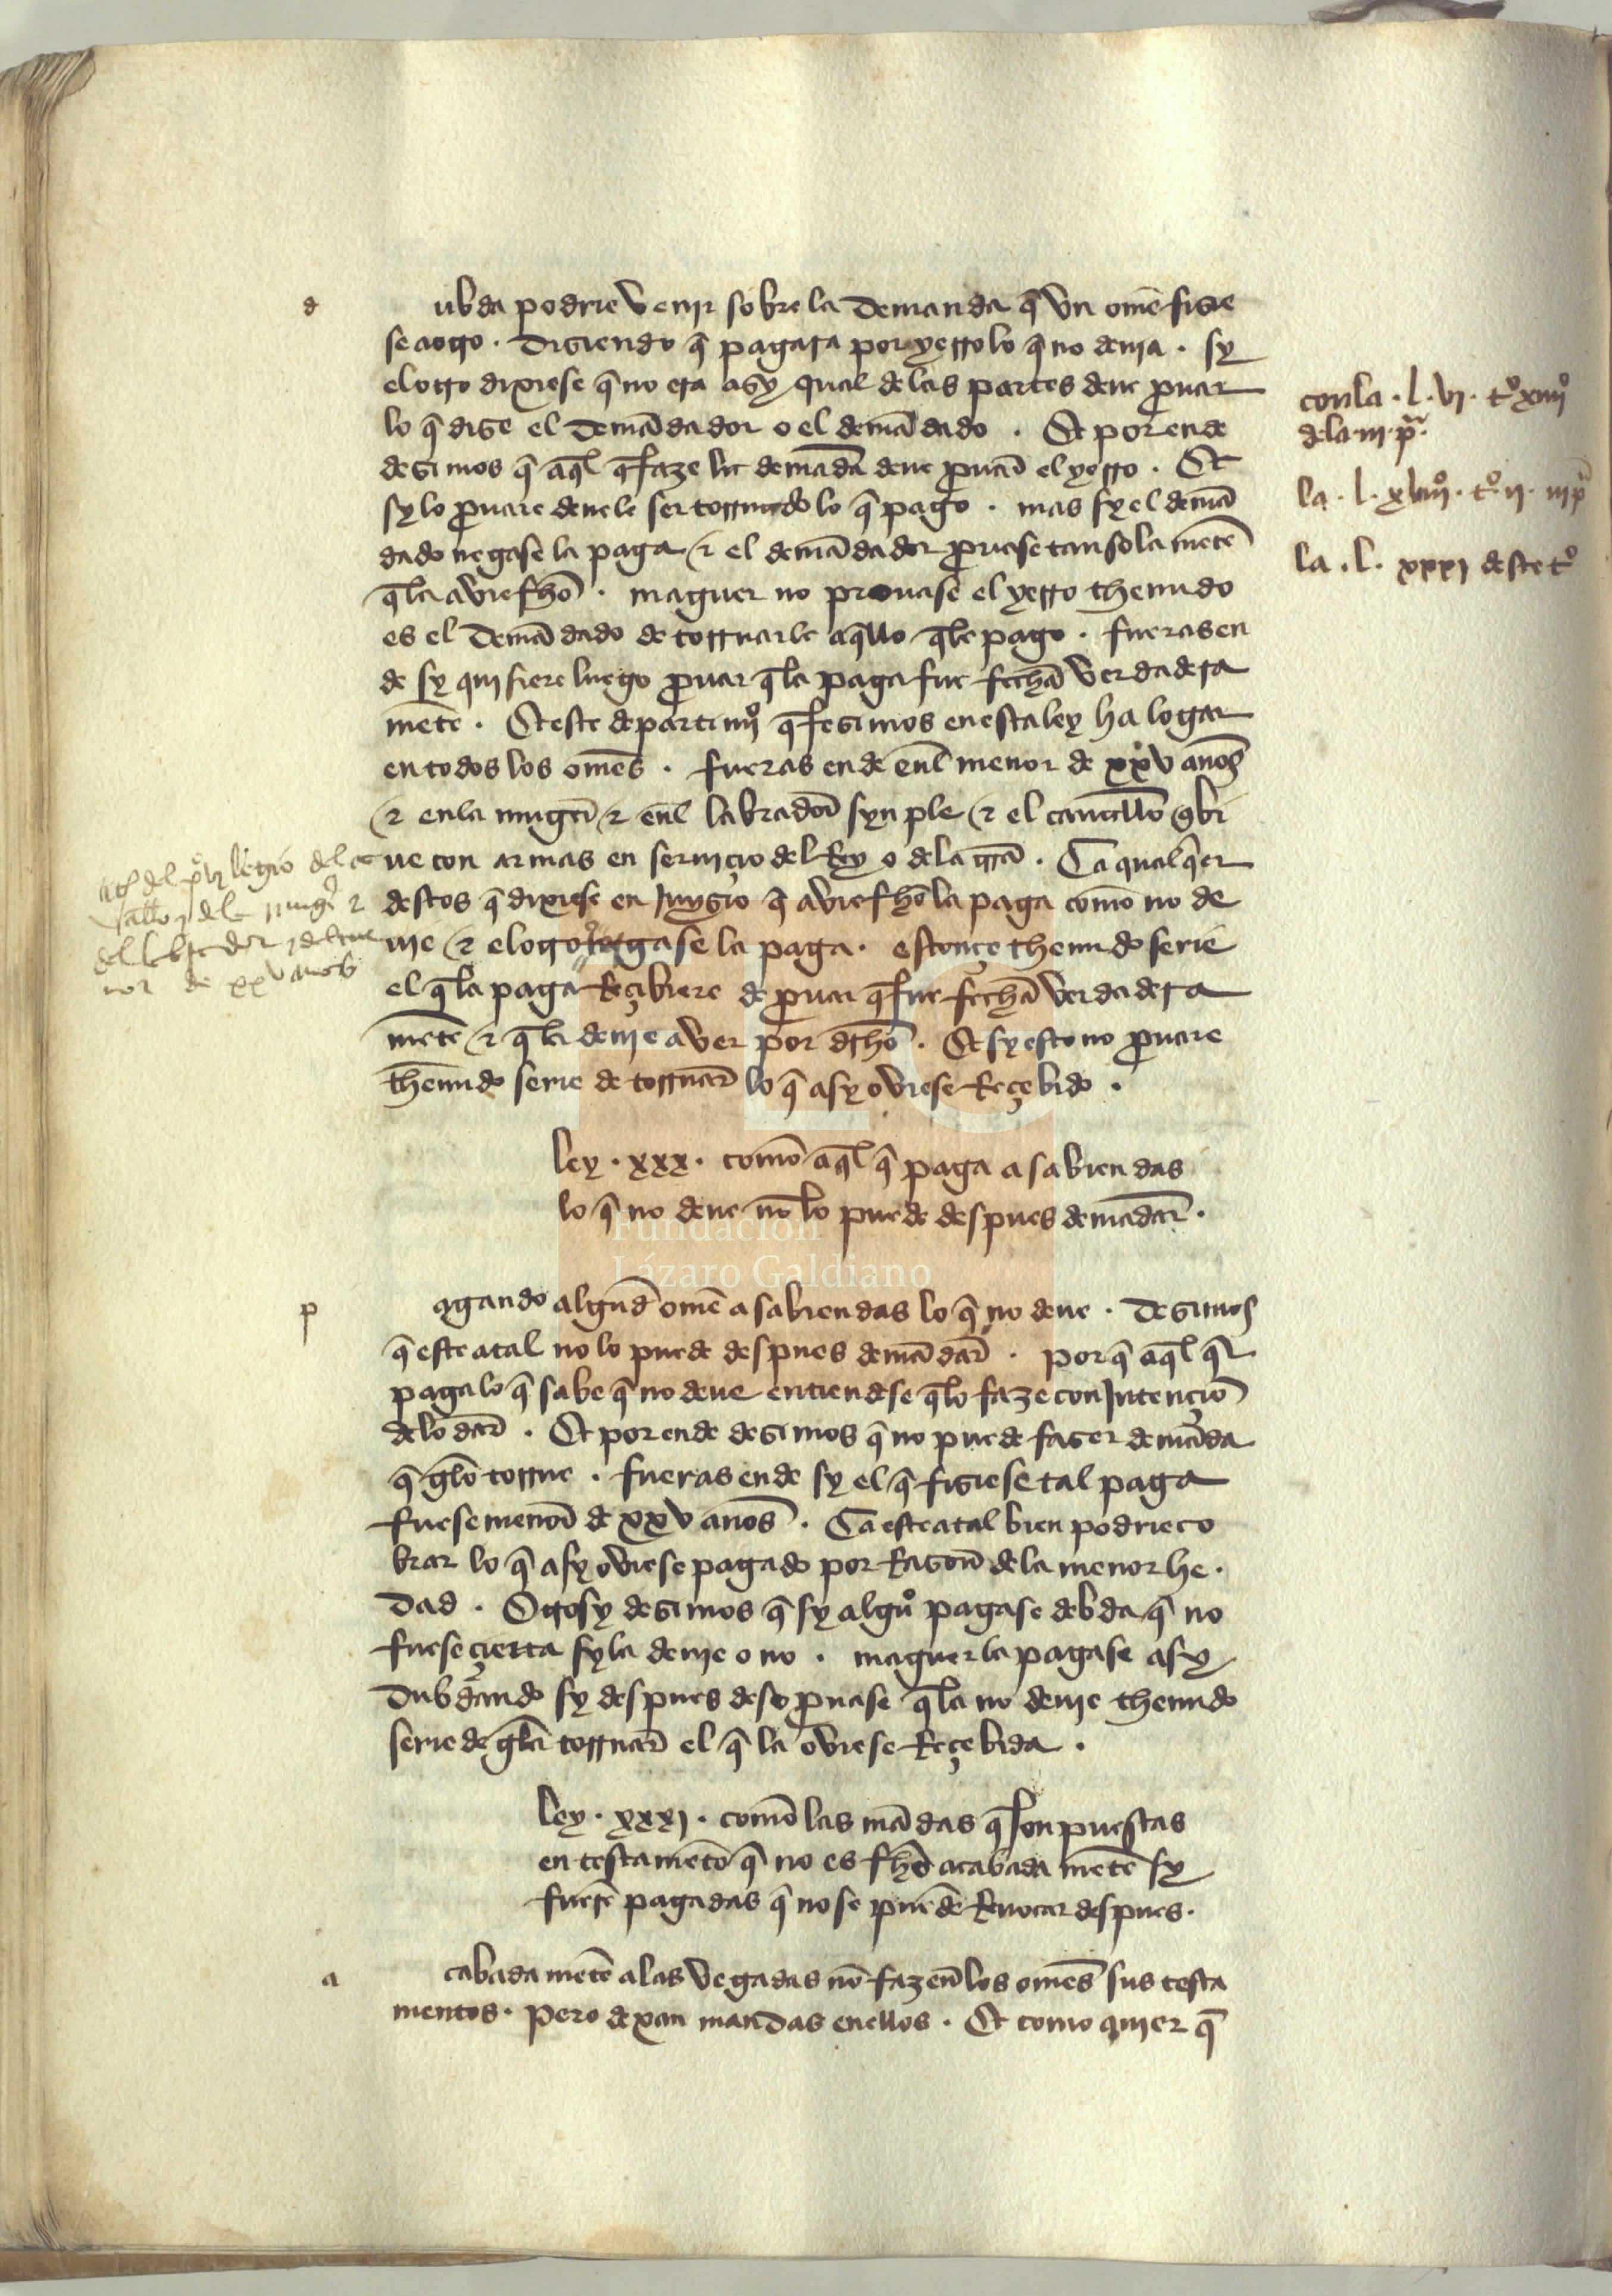 d
ubda podrie venir sobre la demanda q̄ vn omē fizie
se a otro . diziendo q̄ pagara por yerro lo q̄ no deuia . sy
el otro dixiese q̄ no era asy qual de las partes deue ꝓuar
lo q̄ dize el demādador o el demādado . Et por ende
dezimos q̄ aq̄l q̄ faze la demāda deue ꝓuar el yerro . Et
sy lo ꝓuare deuele ser tornado lo q̄ pago . mas sy el demā
dado negase la paga ⁊ el demādador ꝓuase tan sola mētē
q̄ la avie fħo . maguer no prouase el yerro thenudo
es el demādado de tornarle aq̄llo q̄ le pago . fueras en
de sy quisiere luego ꝓuar q̄ la paga fue fecħa verdadera
mētē . Et este departimīo q̄ fezimos en esta ley ha logar
en todos los omēs . fueras ende en̄l menor de xxv años
⁊ en la muger̄ ⁊ en̄l labrador̄ synple ⁊ el cauallo q̄ bi
ue con armas en seruiçio del Rey o de la trr̄a . Ca qualq̄er
destos q̄ dixiese en Juyzio q̄ avie fħo la paga como no de
uie ⁊ el otro negase la paga . estonçe thenudo serie
el q̄ la paga Reçibiere de ꝓuar q̄ fue fecħa verdadera
mētē ⁊ q̄ la deuie aver por dr̄ħo . Et sy esto no ꝓuare
thenudo serie de tornar̄ lo q̄ asy oviese Reçebido .
con la . l . vi . tº xiiijº
de la . iij . pª .
la . l . xxxj deste tº
del labrador ⁊ del me
nor de xxv años
ley . xxx . como aq̄l q̄ paga a sabiendas
lo q̄ no deue nō lo puede despues demādar̄ .
p
agando algund̄ omē a sabiendas lo q̄ no deue . dezimos
q̄ este atal no lo puede despues demādar̄ . porq̄ aq̄l q̄
paga lo q̄ sabe q̄ no deue entiendese q̄ lo faze con Jntençiō
de lo dar̄ . Et por ende dezimos q̄ no puede fazer demāda
q̄ gelo torne . fueras ende sy el q̄ fiziese tal paga
fuese menor̄ de xxv años . Ca este atal bien podrie co
brar lo q̄ asy oviese pagado por Razon̄ de la menor he .
dad . Otrosy dezimos q̄ sy algūº pagase debda q̄ no
fuese çierta sy la deuie o no . maguer la pagase asy
dubdando sy despues deso ꝓuase q̄ la no deuie thenudo
serie de gela tornar̄ el q̄ la oviese Reçebida .
ley . xxxj . como las mādas q̄ son puestas
en testamētō q̄ no es fħo acabada mētē sy
fuerē pagadas q̄ no se puedē Reuocar despues .
a
cabada mētē a las vegadas nō fazen̄ los omēs sus testa
mentos . pero dexan mandas en ellos . Et como quier q̄